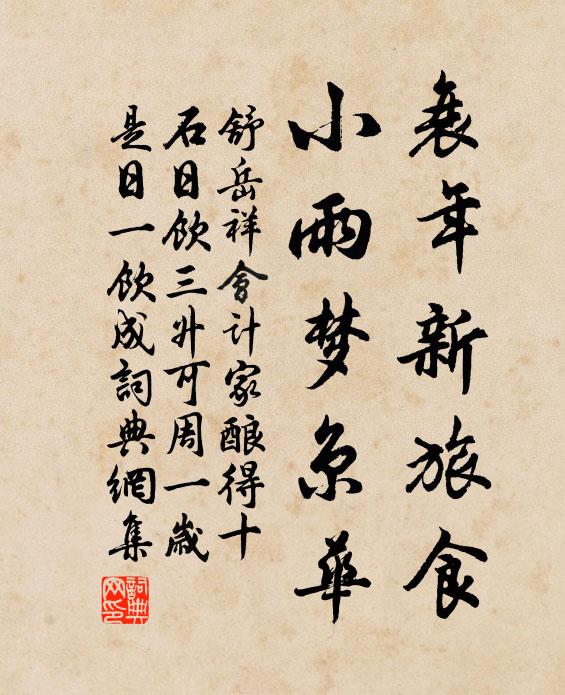 衰年新旅食
小雨梦京華
舒岳祥會計家酿得十
石日飲三升可周一歲
是日一飲成詞典網集
詞典
网印